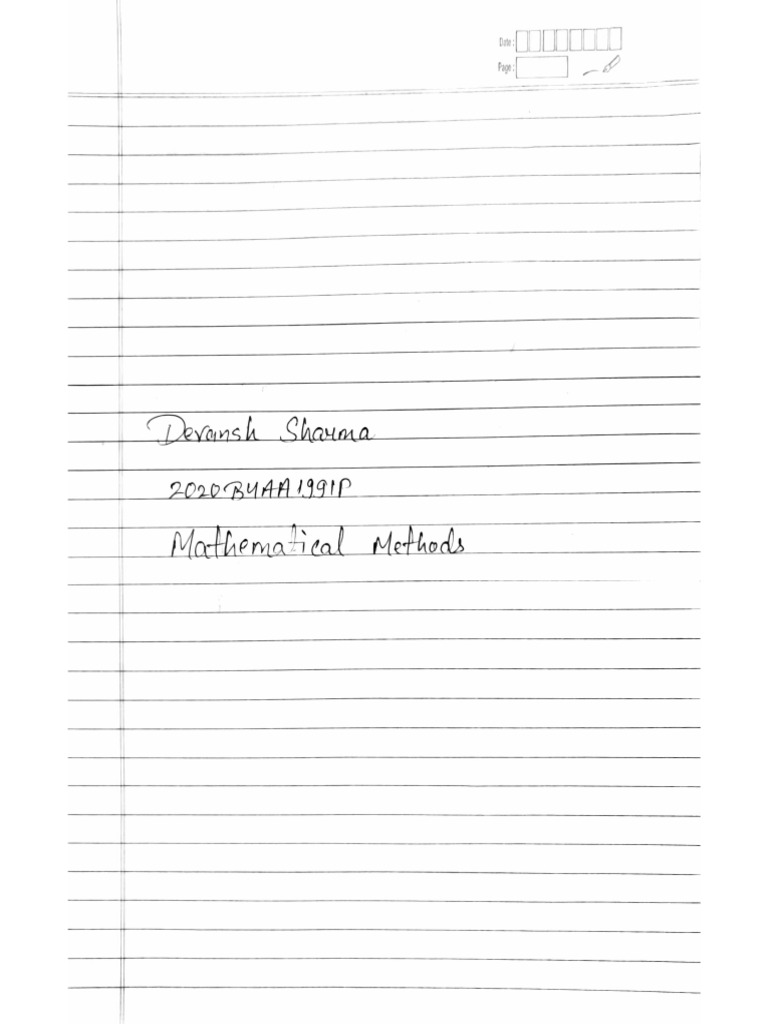 Date :
Page :
Devansh Sharma
2020B4AA1991P
Mathematical Methods